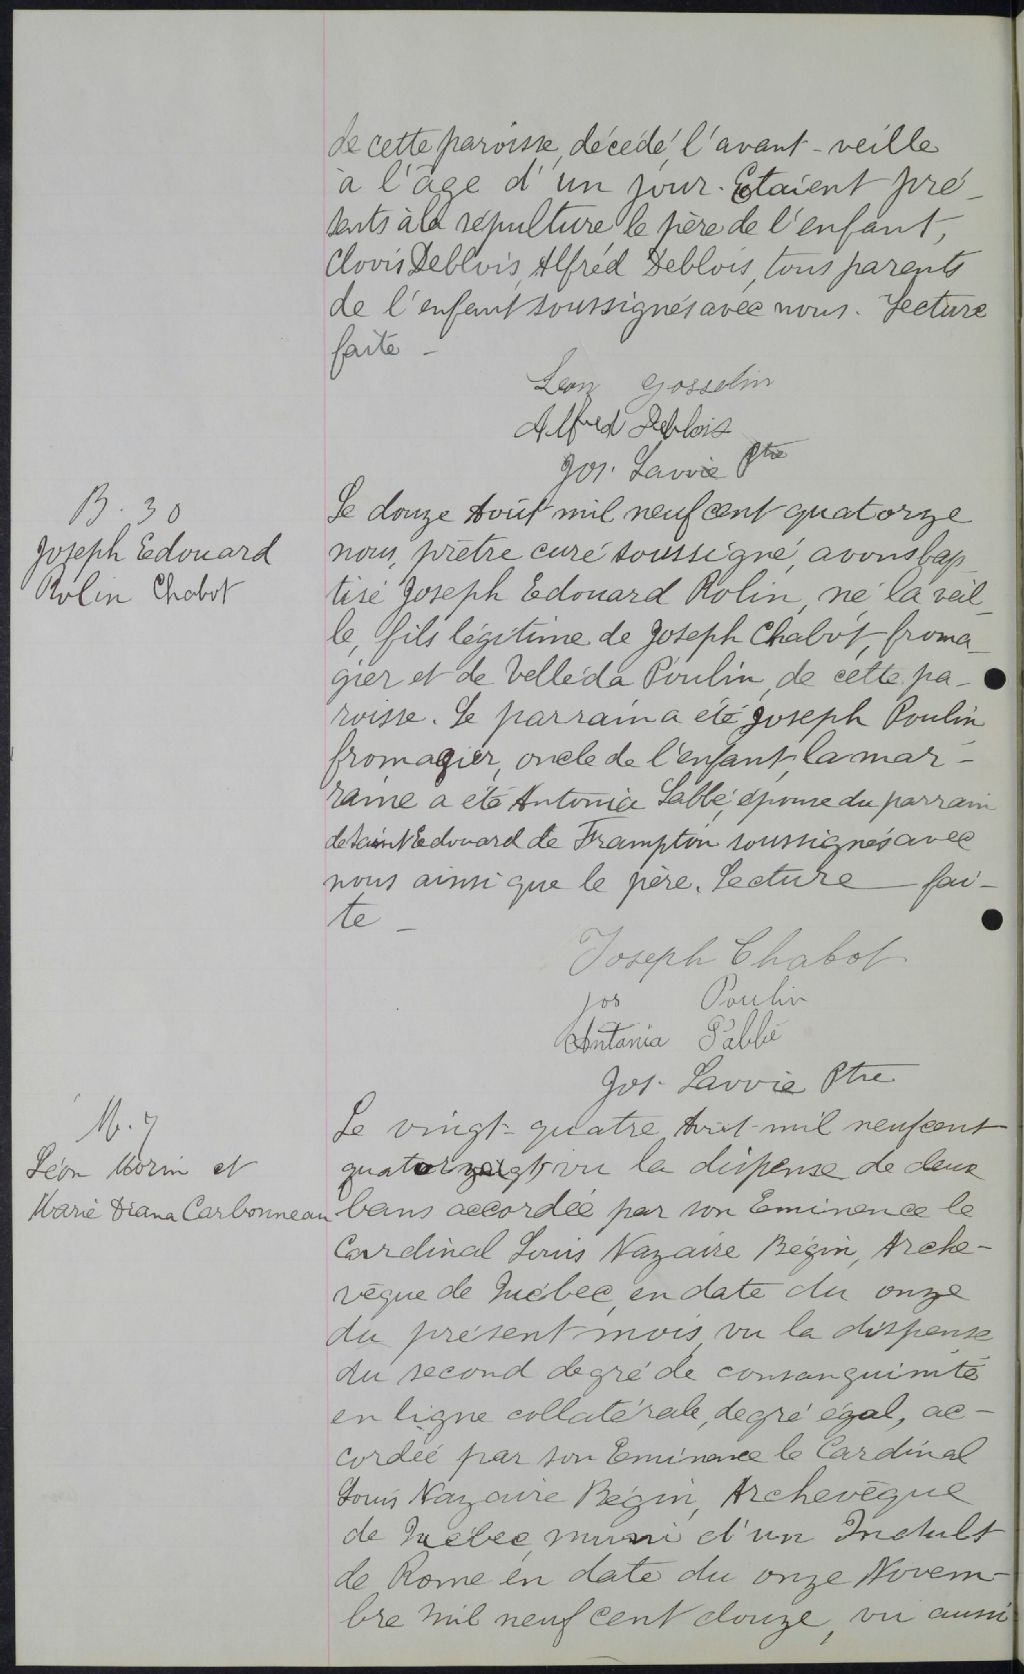 de cette paroisse, décédé l'avant-veille
à l'âge d'un jour. Etaient pré-
sents à la sépulture le père de l'enfant,
Clovis Deblois, Alfred Deblois, tous parents
de l'enfant soussignés avec nous. Lecture
faite -
Léon Gosselin
Alfred Deblois
Jos. Lavoie Ptre
B. 30
Joseph Edouard
Rolin Chabot
Le douze Août mil neuf cent quatorze
nous, prêtre curé soussigné, avons bap-
tisé Joseph Edouard Rolin, né la veil-
le, fils légitime de Joseph Chabot, froma-
gier et de Velléda Poulin, de cette pa-
roisse. Le parrain a été Joseph Poulin
fromagier, oncle de l'enfant, la mar-
raine a été Antonia Labbé, épouse du parrain
de Saint Edouard de Frampton soussignés avec
nous ainsi que le père. Lecture fai-
te -
Joseph Chabot
Jos Poulin
Antonia Labbé
Jos. Lavoie Ptre
M. 7
Léon Morin et
Marie Diana Carbonneau
Le vingt-quatre Août mil neuf cent
quatorze vu la dispense de deux
bans accordée par son Eminence le
Cardinal Louis Nazaire Bégin, Arche-
vêque de Québec, en date du onze
du présent mois, vu la dispense
du second degré de consanguinité
en ligne collatérale, degré égal, ac-
cordée par son Eminence le Cardinal
Louis Nazaire Bégin, Archevêque
de Québec, muni d'un Indult
de Rome en date du onze Novem-
bre mil neuf cent douze, vu aussi